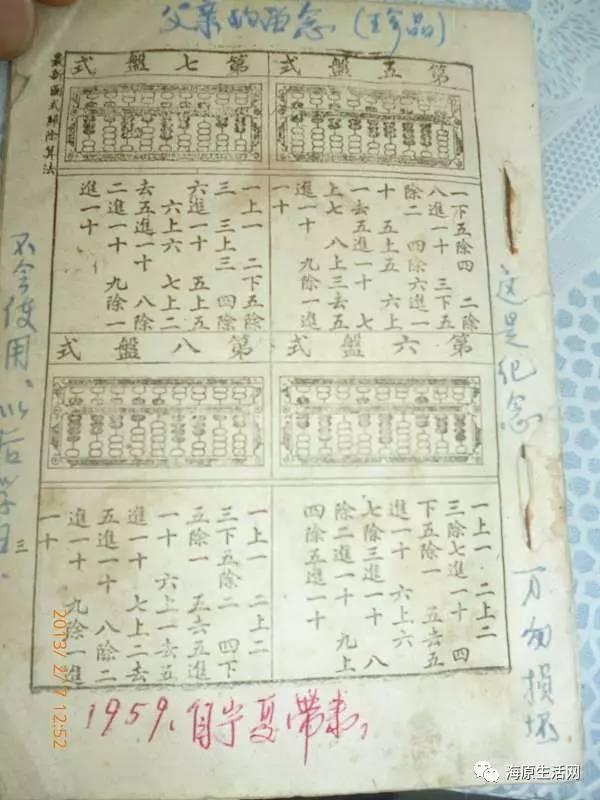 父亲的留念（珍品）
这是纪念 万勿損坏
第五盤式
一下五除四 二除
八進一十 三下五
除二 四除六進一
十 五上五 六上
一去五進一十 七
上七 八上三去五
進一十 九除一進
一十
第七盤式
一上一 二下五除
三 三上三 四除
六進一十 五上五
六上六 七上二
去五進一十 八除
二進一十 九除一
進一十
第六盤式
一上一 二上二
三除七進一十 四
下五除一 五去五
進一十 六上六
七除三進一十 八
除二進一十 九上
四除五進一十
第八盤式
一上一 二上二
三下五除二 四下
五除一 五去五進
一十 六上一去五
進一十 七上二去
五進一十 八除二
進一十 九除一進
一十
最新區式歸除算法
三
不会使用、以后学习.
1959、自宁夏带来,
2013/2/7 12:52
海原生活网